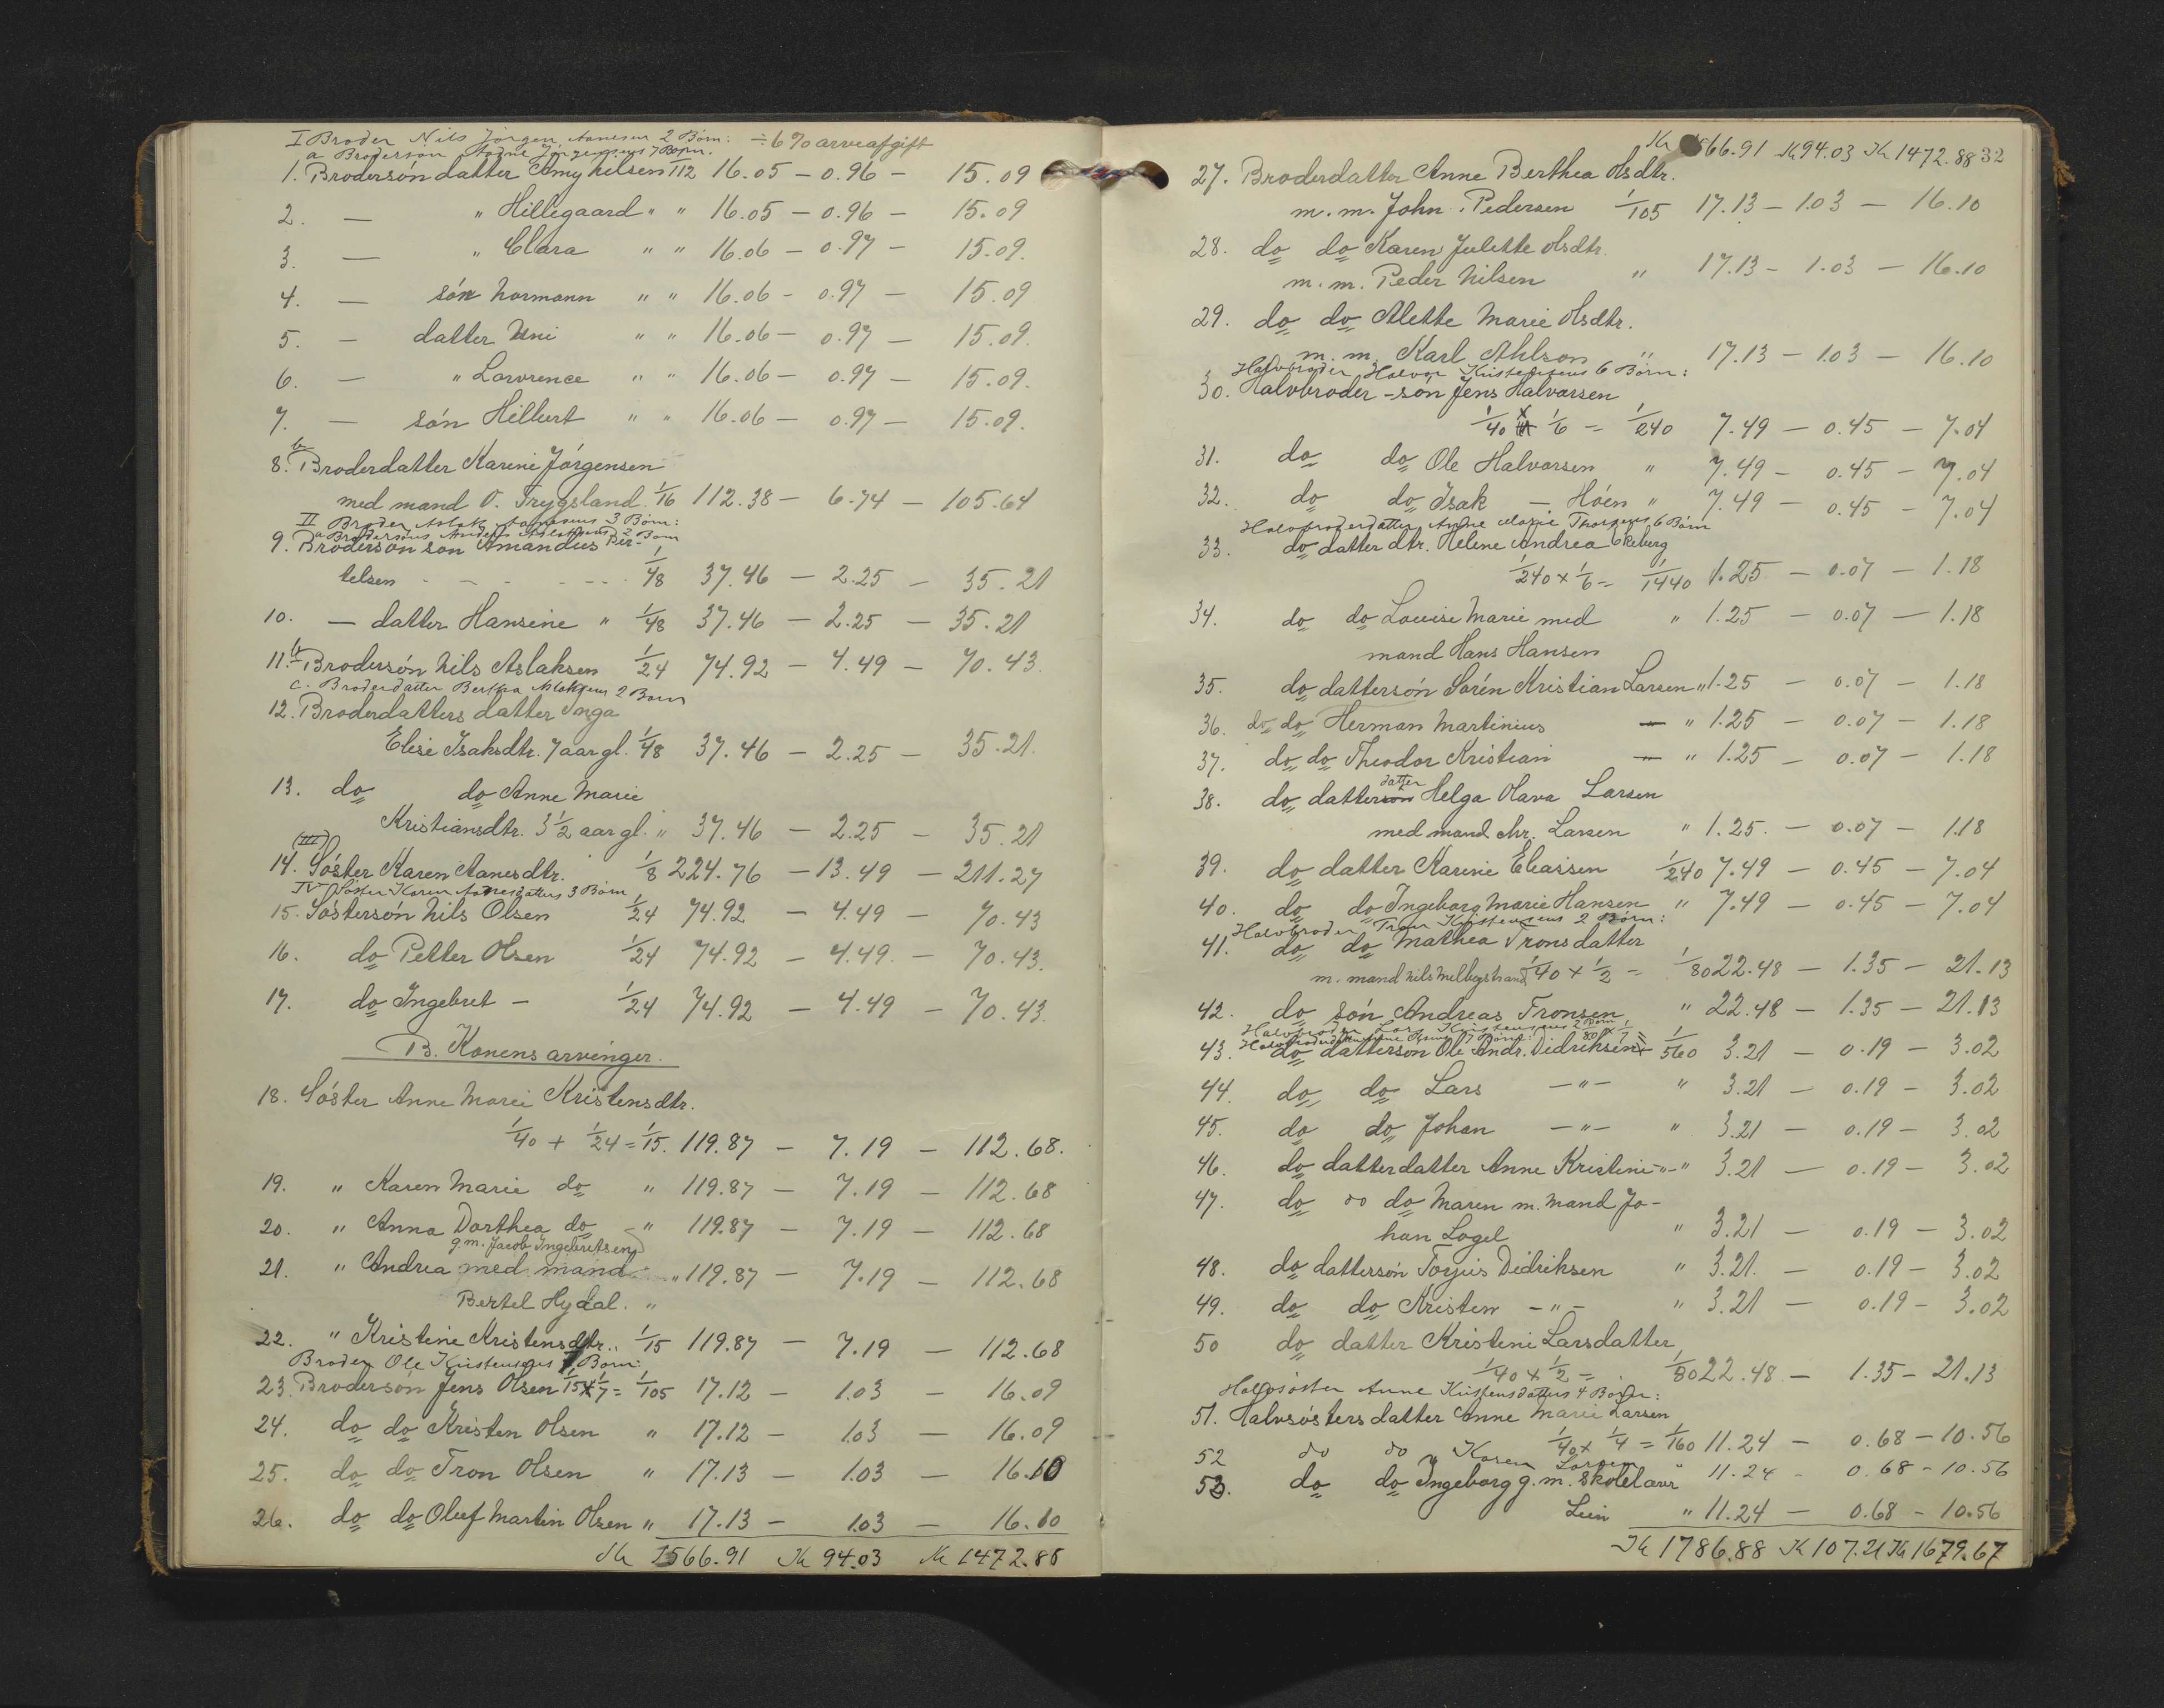 I Broder Nils Jörgen Aanesens 2 Börn: ÷ 6% arveafgift
a Broderson Aadne Jörgensens 7 Börn.
1. Brodersön datter Amy Nilsen 1/112 16.05 — 0.96 — 15.09
2. — " Hillegaard " " 16.05 — 0.96 — 15.09
3. — " Clara " " 16.06 — 0.97 — 15.09.
4. — sön Normann " " 16.06 — 0.97 — 15.09
5. — datter Uni " " 16.06 — 0.97 — 15.09.
6. — " Lawrence " " 16.06 — 0.97 — 15.09.
7. — sön Hilburt " " 16.06 — 0.97 — 15.09.
8. b Broderdatter Karine Jörgensen
med mand O. Trygsland. 1/16 112.38 — 6.74 — 105.64
II Broder Aslak Aanesens 3 Börn:
a Brodersöns Anders Aslaksens 2 Born
9. Brodersön sön Amandus Ber-
telsen - - - - - 1/48 37.46 — 2.25 — 35.21
10. — datter Hansine " 1/48 37.46 — 2.25 — 35.21
11. b Brodersön Nils Aslaksen 1/24 74.92 — 4.49 — 70.43
c. Broderdatter Bertha Aslaksens 2 Born
12. Broderdatters datter Inga
Elise Isaksdtr. 7 aar gl. 1/48 37.46 — 2.25 — 35.21.
13. do do Anne Marie
Kristiansdtr. 3 1/2 aar gl. " 37.46 — 2.25 — 35.21
(III)
14. Söster Karen Aanesdtr. 1/8 224.76 — 13.49 — 211.27
IV Söster Karen Aanesdatters 3 Börn
15. Söstersön Nils Olsen 1/24 74.92 — 4.49 — 70.43
16. do Petter Olsen 1/24 74.92 — 4.49. — 70.43.
17. do Ingebret — 1/24 74.92 — 4.49 — 70.43.
B. Konens arvinger.
18. Söster Anne Marei Kristensdtr.
1/40 + 1/24 = 1/15. 119.87 — 7.19 — 112.68.
19. " Karen Marie do " 119.87 — 7.19 — 112.68
20. " Anna Dorthea do — " 119.87 — 7.19 — 112.68
g.m. Jacob Ingebretsen
21. " Andrea med mand " 119.87 — 7.19 — 112.68
Bertel Hydal. "
22. " Kristine Kristensdtr. " 1/15 119.87 — 7.19 — 112.68
Broder Ole Kristensens 7 Börn:
23. Brodersön Jens Olsen 1/15 x 1/7 = 1/105 17.12 — 1.03 — 16.09
24. do do Kristen Olsen " 17.12 — 1.03 — 16.09
25. do do Tron Olsen " 17.13 — 1.03 — 16.10
26. do do Oluf Martin Olsen " 17.13 — 1.03 — 16.10
Kr 1566.91 Kr 94.03 Kr 1472.88
Kr 1566.91 Kr 94.03 Kr 1472.88 32
27. Broderdatter Anne Berthea Olsdtr.
m. m. John Pedersen 1/105 17.13 — 1.03 — 16.10
28. do do Karen Julette Olsdtr.
m. m. Peder Nilsen " 17.13 — 1.03 — 16.10
29. do do Alette Marie Olsdtr.
m. m. Karl Ahlson " 17.13 — 1.03 — 16.10
Halvbroder Halvor Kristensens 6 Börn:
30. Halvbroder-sön Jens Halvorsen
1/40 x 1/6 = 1/240 7.49 — 0.45 — 7.04
31. do do Ole Halvorsen " 7.49 — 0.45 — 7.04
32. do do Isak — Höen " 7.49 — 0.45 — 7.04
Halvbroderdatter Anne Marie Thorsens 6 Börn
33. do datter dtr. Helene Andrea Reberg
1/240 x 1/6 = 1/1440 1.25 — 0.07 — 1.18
34. do do Louise Marie med " 1.25 — 0.07 — 1.18
mand Hans Hansen
35. do dattersön Sorén Kristian Larsen " 1.25 — 0.07 — 1.18
36. do do Herman Martinius — " 1.25 — 0.07 — 1.18
37. do do Theodor Kristian — " 1.25 — 0.07 — 1.18
datter
38. do dattersön Helga Olava Larsen
med mand Chr. Larsen " 1.25. — 0.07 — 1.18
39. do datter Karine Eliassen 1/240 7.49 — 0.45 — 7.04
40. do do Ingeborg Marie Hansen " 7.49 — 0.45 — 7.04
Halvbroder Tron Kristensens 2 Börn:
41. do do Mathea Tronsdatter
m. mand Nils Melbystrand 1/40 x 1/2 = 1/80 22.48 — 1.35 — 21.13
42. do sön Andreas Tronsen " 22.48 — 1.35 — 21.13
Halvbroder Lars Kristensens 2 Börn
1/80 x 1/7 =
43. do dattersön Ole Andr. Didriksen 1/560 3.21 — 0.19 — 3.02
44. do do Lars — " — " 3.21 — 0.19 — 3.02
45. do do Johan — " — " 3.21 — 0.19 — 3.02
46. do datterdatter Anne Kristine — " — " 3.21 — 0.19 — 3.02
47. do do do Maren m. mand Jo-
han Logel " 3.21 — 0.19 — 3.02
48. do dattersön Torjus Didriksen " 3.21. — 0.19 — 3.02
49. do do Kristen — " — " 3.21 — 0.19 — 3.02
50 do datter Kristine Larsdatter
1/40 x 1/2 = 1/80 22.48 — 1.35 — 21.13
Halvsöster Anne Kristensdatters 4 Börn:
51. Halvsösters datter Anne Marie Larsen
1/40 x 1/4 = 1/160 11.24 — 0.68 — 10.56
52 do do " Karen Larsen " 11.24 — 0.68 — 10.56
53. do do Ingeborg g. m. skolelærer
Lein " 11.24 — 0.68 — 10.56
Kr 1786.88 Kr 107.21 Kr 1679.67